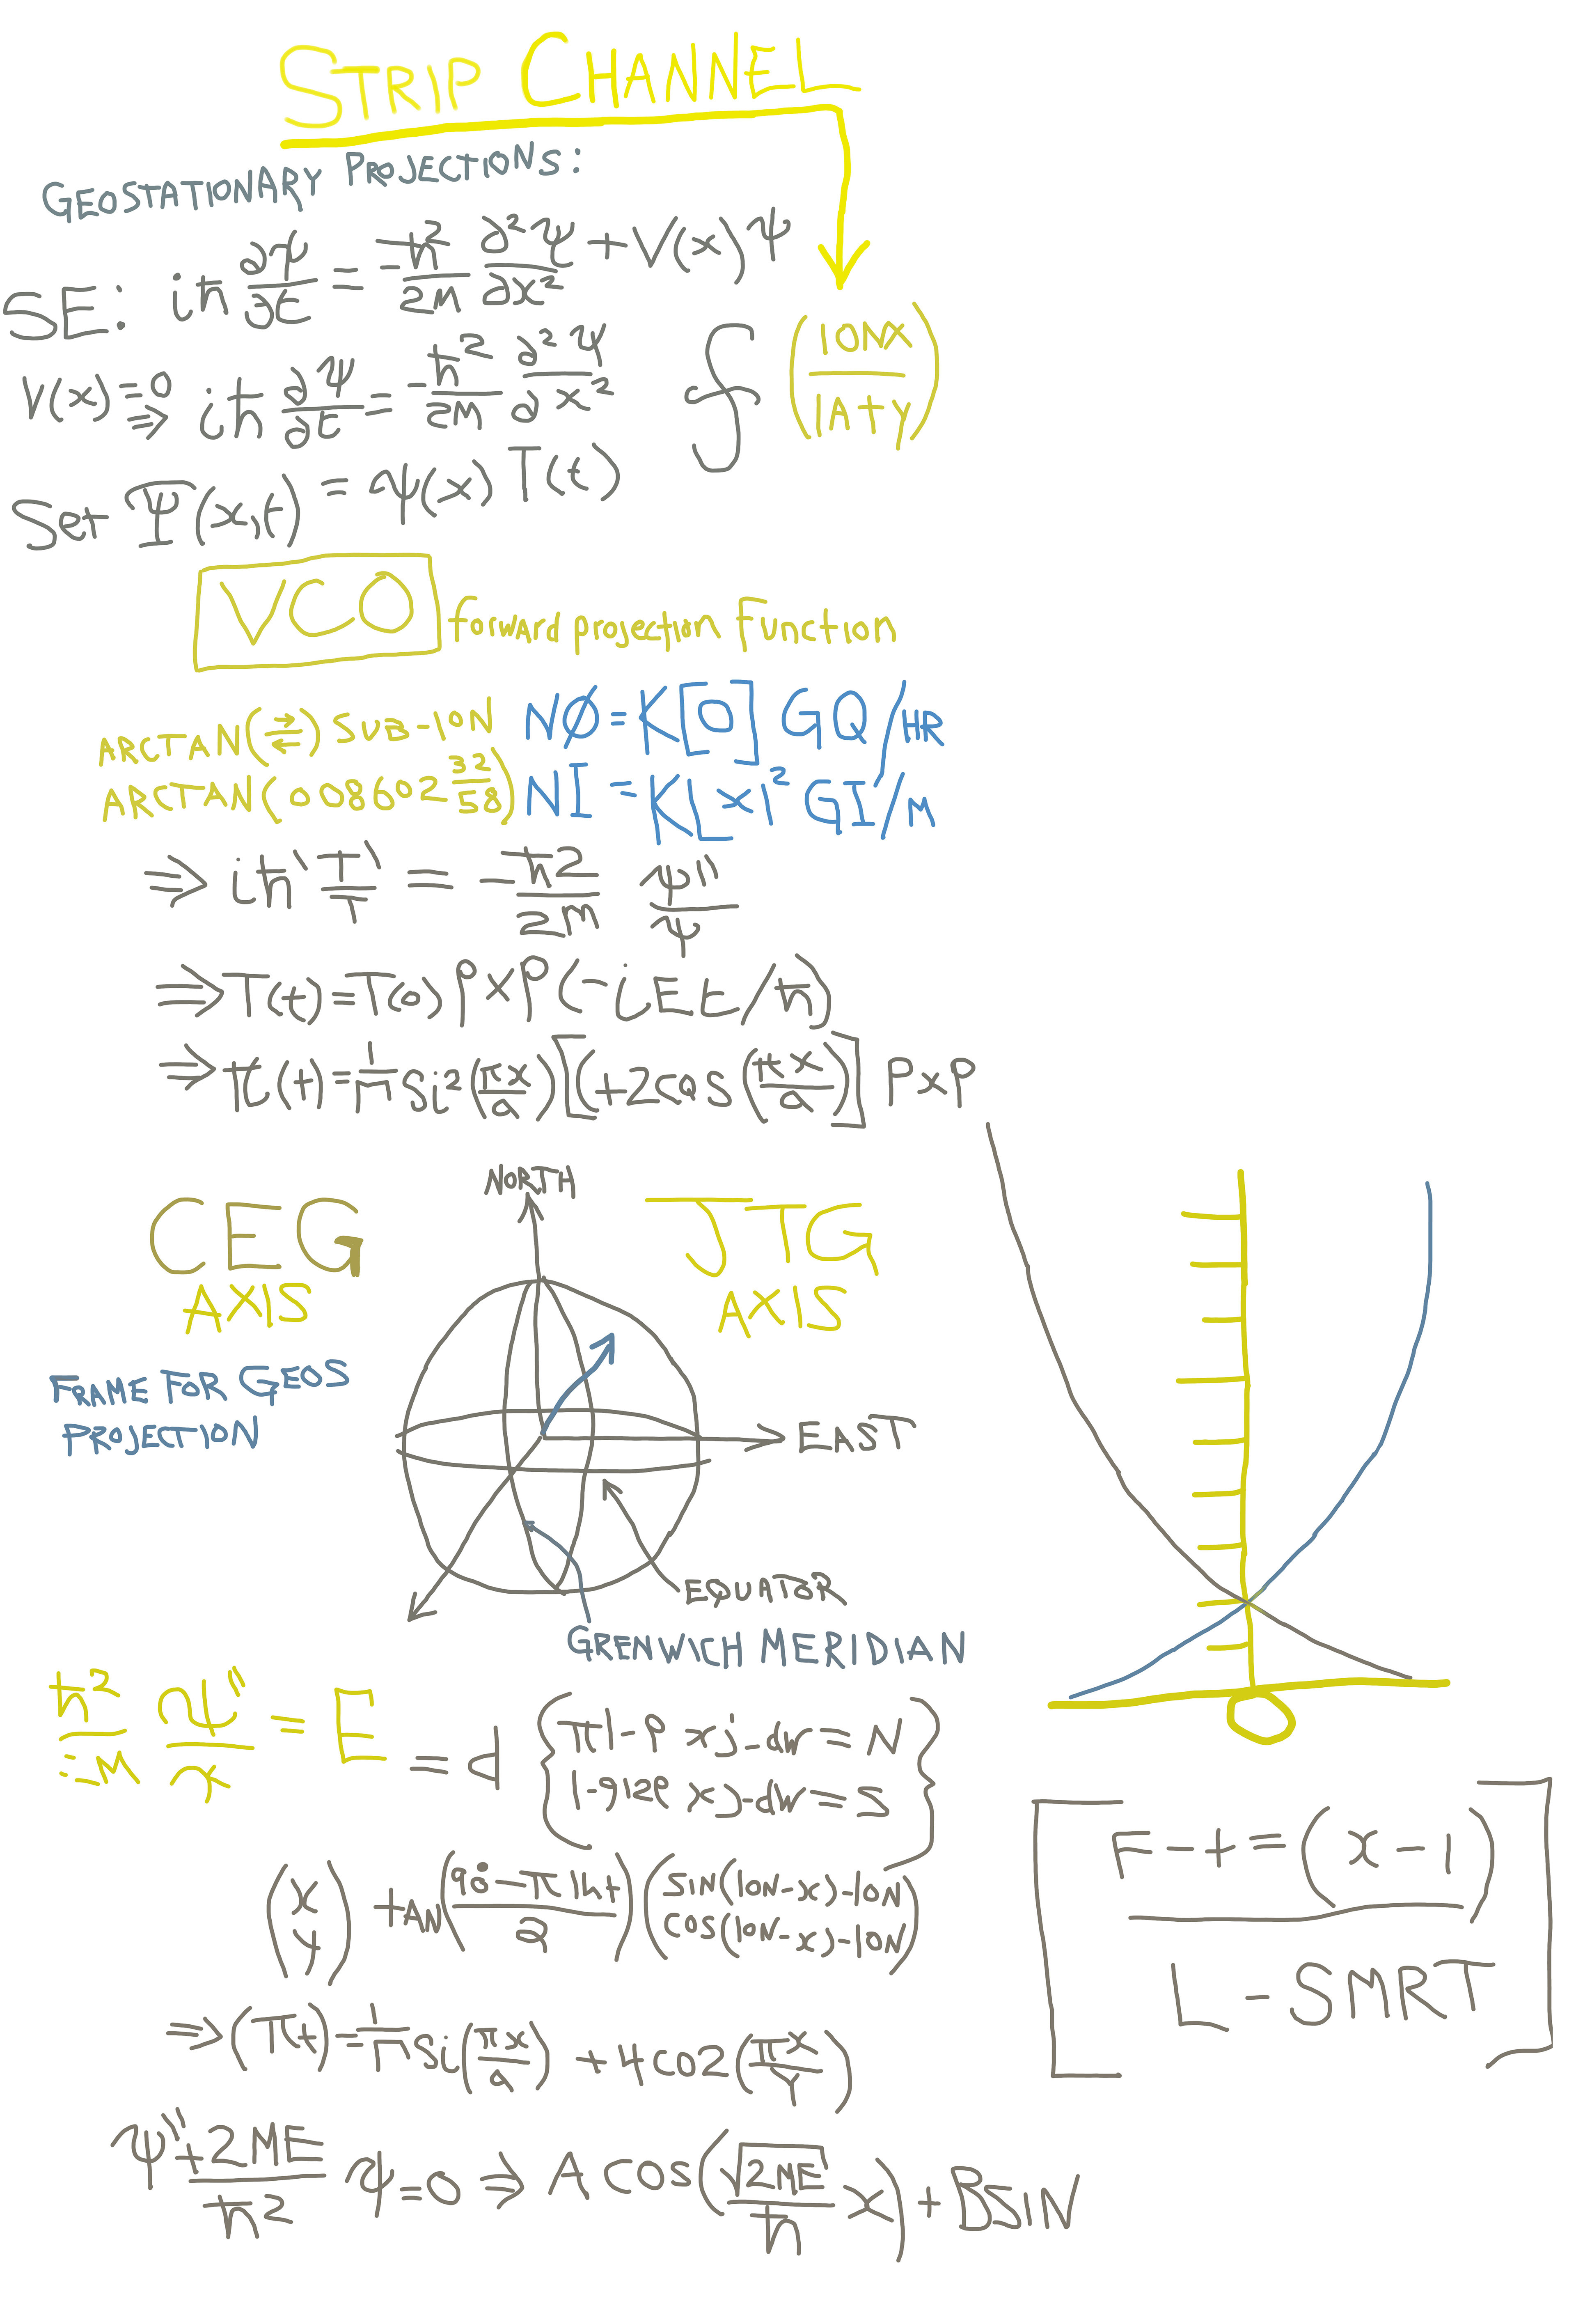 STRIP CHANNEL
GEOSTATIONARY PROJECTIONS:
SE: iħ ∂ψ/∂t = -ħ²/2M ∂²ψ/∂x² + V(x)ψ
V(x)=0 ⇒ iħ ∂ψ/∂t = -ħ²/2M ∂²ψ/∂x²
∫ (10Nx/1A+y)
Set Ψ(x,t) = ψ(x)T(t)
VCO forward projection Function
ARCTAN(⇄) SUB-10N NØ=K[O] GQ/HR
ARCTAN(008602 32/58) NI=K[x1² GI/M
⇒ iħ T'/T = -ħ²/2m ψ''/ψ
⇒ T(t)=T(0) PxP(-iEt/ħ)
⇒ π(t)= 1/π si2(πx/a)[(+2cos(πx/a)] PxP
NORTH
CEG
AXIS
JTG
AXIS
FRAME FOR GEOS
PROJECTION
EAST
EQUATOR
GRENWICH MERIDIAN
0
= E = d
π1-P xj-dw=N
1-9120 xj-dw=S
(x y) +AN
SIN(10N-x)-10N
COS(10N-x)-10N
F-t=(x-1)
L-SMRT
⇒ (πt)= 1/π si(πx/a) +4CO2(πx/Y)
ψ''+2ME/ħ² ψ=0 ⇒ A COS(√2ME/ħ x)+BSIN